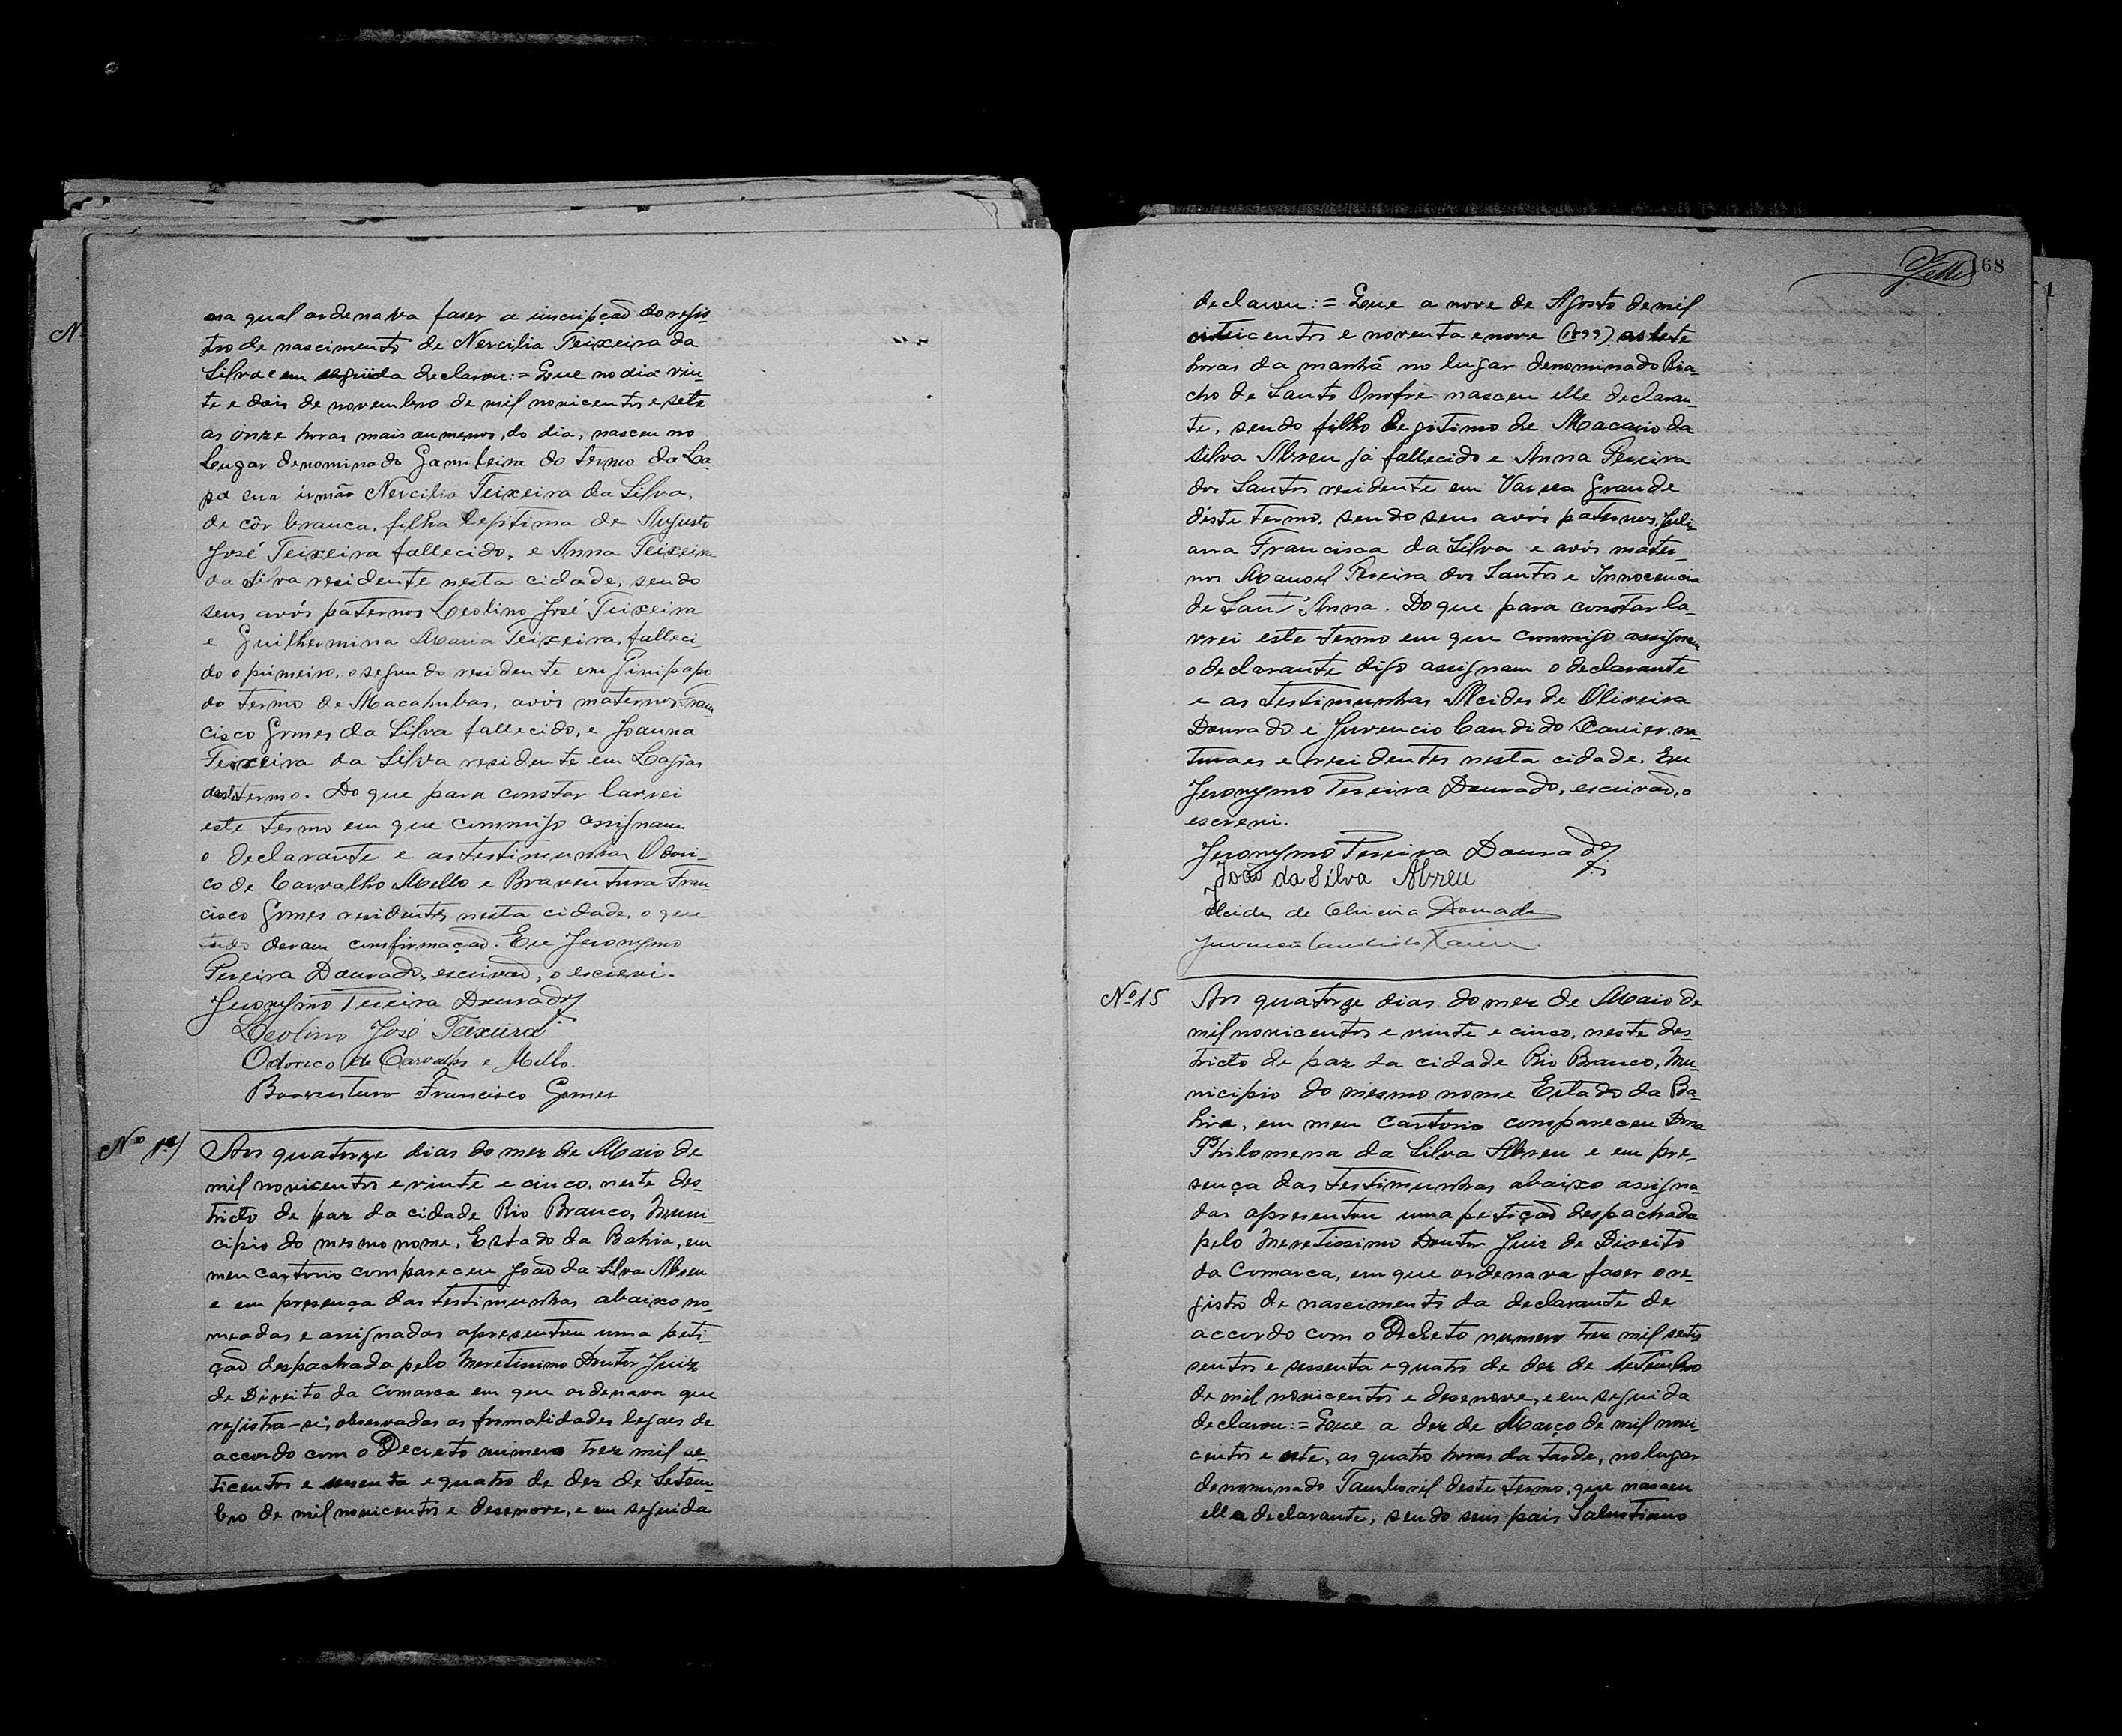 na qual ordenava faser a inscripção do regis-
tro de nascimento de Nercilia Teixeira da
Silva e em seguida declarou:= Que no dia vin-
te e dois de novembro de mil novicentos e sete
as onze horas mais ou menos, do dia, nasceu no
lugar denominado Gamileira do termo da La-
pa sua irmão Nercilia Teixeira da Silva,
de côr branca, filha legitima de Augusto
José Teixeira fallecido, e Anna Teixeira
da Silva residente nesta cidade, sendo
seus avós paternos Leolino José Teixeira
e Guilhermina Maria Teixeira, falleci-
do o primeiro, o segundo residente em Ginipapo
do termo de Macahubas, avós maternos Fran-
cisco Gomes da Silva fallecido, e Joanna
Teixeira da Silva residente em Lagôas
deste termo. Do que para constar lavrei
este termo em que commigo assignam
o declarante e as testimunhas Odori-
co de Carvalho Mello e Boaventura Fran-
cisco Gomes residentes nesta cidade, o que
tudo deram confirmação. Eu Jeronymo
Pereira Dourado, escrivão, o escrevi.
Jeronymo Pereira Dourado
Leolino José Teixeira
Odorico de Carvalho e Mello.
Boaventura Francisco Gomes
Nº 14
Aos quatorze dias do mez de Maio de
mil novicentos e vinte e cinco, neste des-
tricto de paz da cidade Rio Branco, Muni-
cipio do mesmo nome, Estado da Bahia, em
meu cartorio compareceu João da Silva Abreu
e em presença das testimunhas abaixo no-
meadas e assignadas apresentou uma peti-
ção despachada pelo Meretissimo Doutor Juiz
de Direito da Comarca em que ordenava que
registra-se, observadas as formalidades legaes de
accordo com o Decreto numero trez mil se-
ticentos e sesenta e quatro de dez de Setem-
bro de mil novicentos e desenove, e em seguida
168
declarou:= Que a nove de Agosto de mil
oitucentos e noventa e nove (1899) as sete
horas da manhã no lugar denominado Ria-
cho de Santo Onofre nasceu elle declaran-
te, sendo filho legitimo de Macario da
Silva Abreu já fallecido e Anna Pereira
dos Santos residente em Varzea Grande
dêste termo, sendo seus avós paternos, Juli-
ana Francisca da Silva e avós mater-
nos Manoel Pereira dos Santos e Innocencia
de Sant'Anna. Do que para constar la-
vrei este termo em que commigo assignam
o declarante digo assignam o declarante
e as testimunhas Alcides de Oliveira
Dourado e Juvencio Candido Xavier, na-
turaes e residentes nesta cidade. Eu
Jeronymo Pereira Dourado, escrivão, o
escrevi.
Jeronymo Pereira Dourado
João da Silva Abreu
Alcides de Oliveira Dourado
Juvencio Candido Xavier
Nº 15
Aos quatorze dias do mez de Maio de
mil novicentos e vinte e cinco, neste des-
tricto de paz da cidade Rio Branco, Mu-
nicipio do mesmo nome Estado da Ba-
hia, em meu cartorio compareceu Dona
Philomena da Silva Abreu e em pre-
sença das testimunhas abaixo assigna-
das apresentou uma petição despachada
pelo Meretissimo Doutor Juiz de Direito
da Comarca, em que ordenava faser o re-
gistro de nascimento da declarante de
accordo com o Decreto numero trez mil setis
sentos e sessenta e quatro de dez de setembro
de mil novicentos e desenove, e em seguida
declarou:= Que a dez de Março de mil novi-
centos e sete, as quatro horas da tarde, no lugar
denominado Tamboril deste termo, que nasceu
ella declarante, sendo seus pais Salustiano